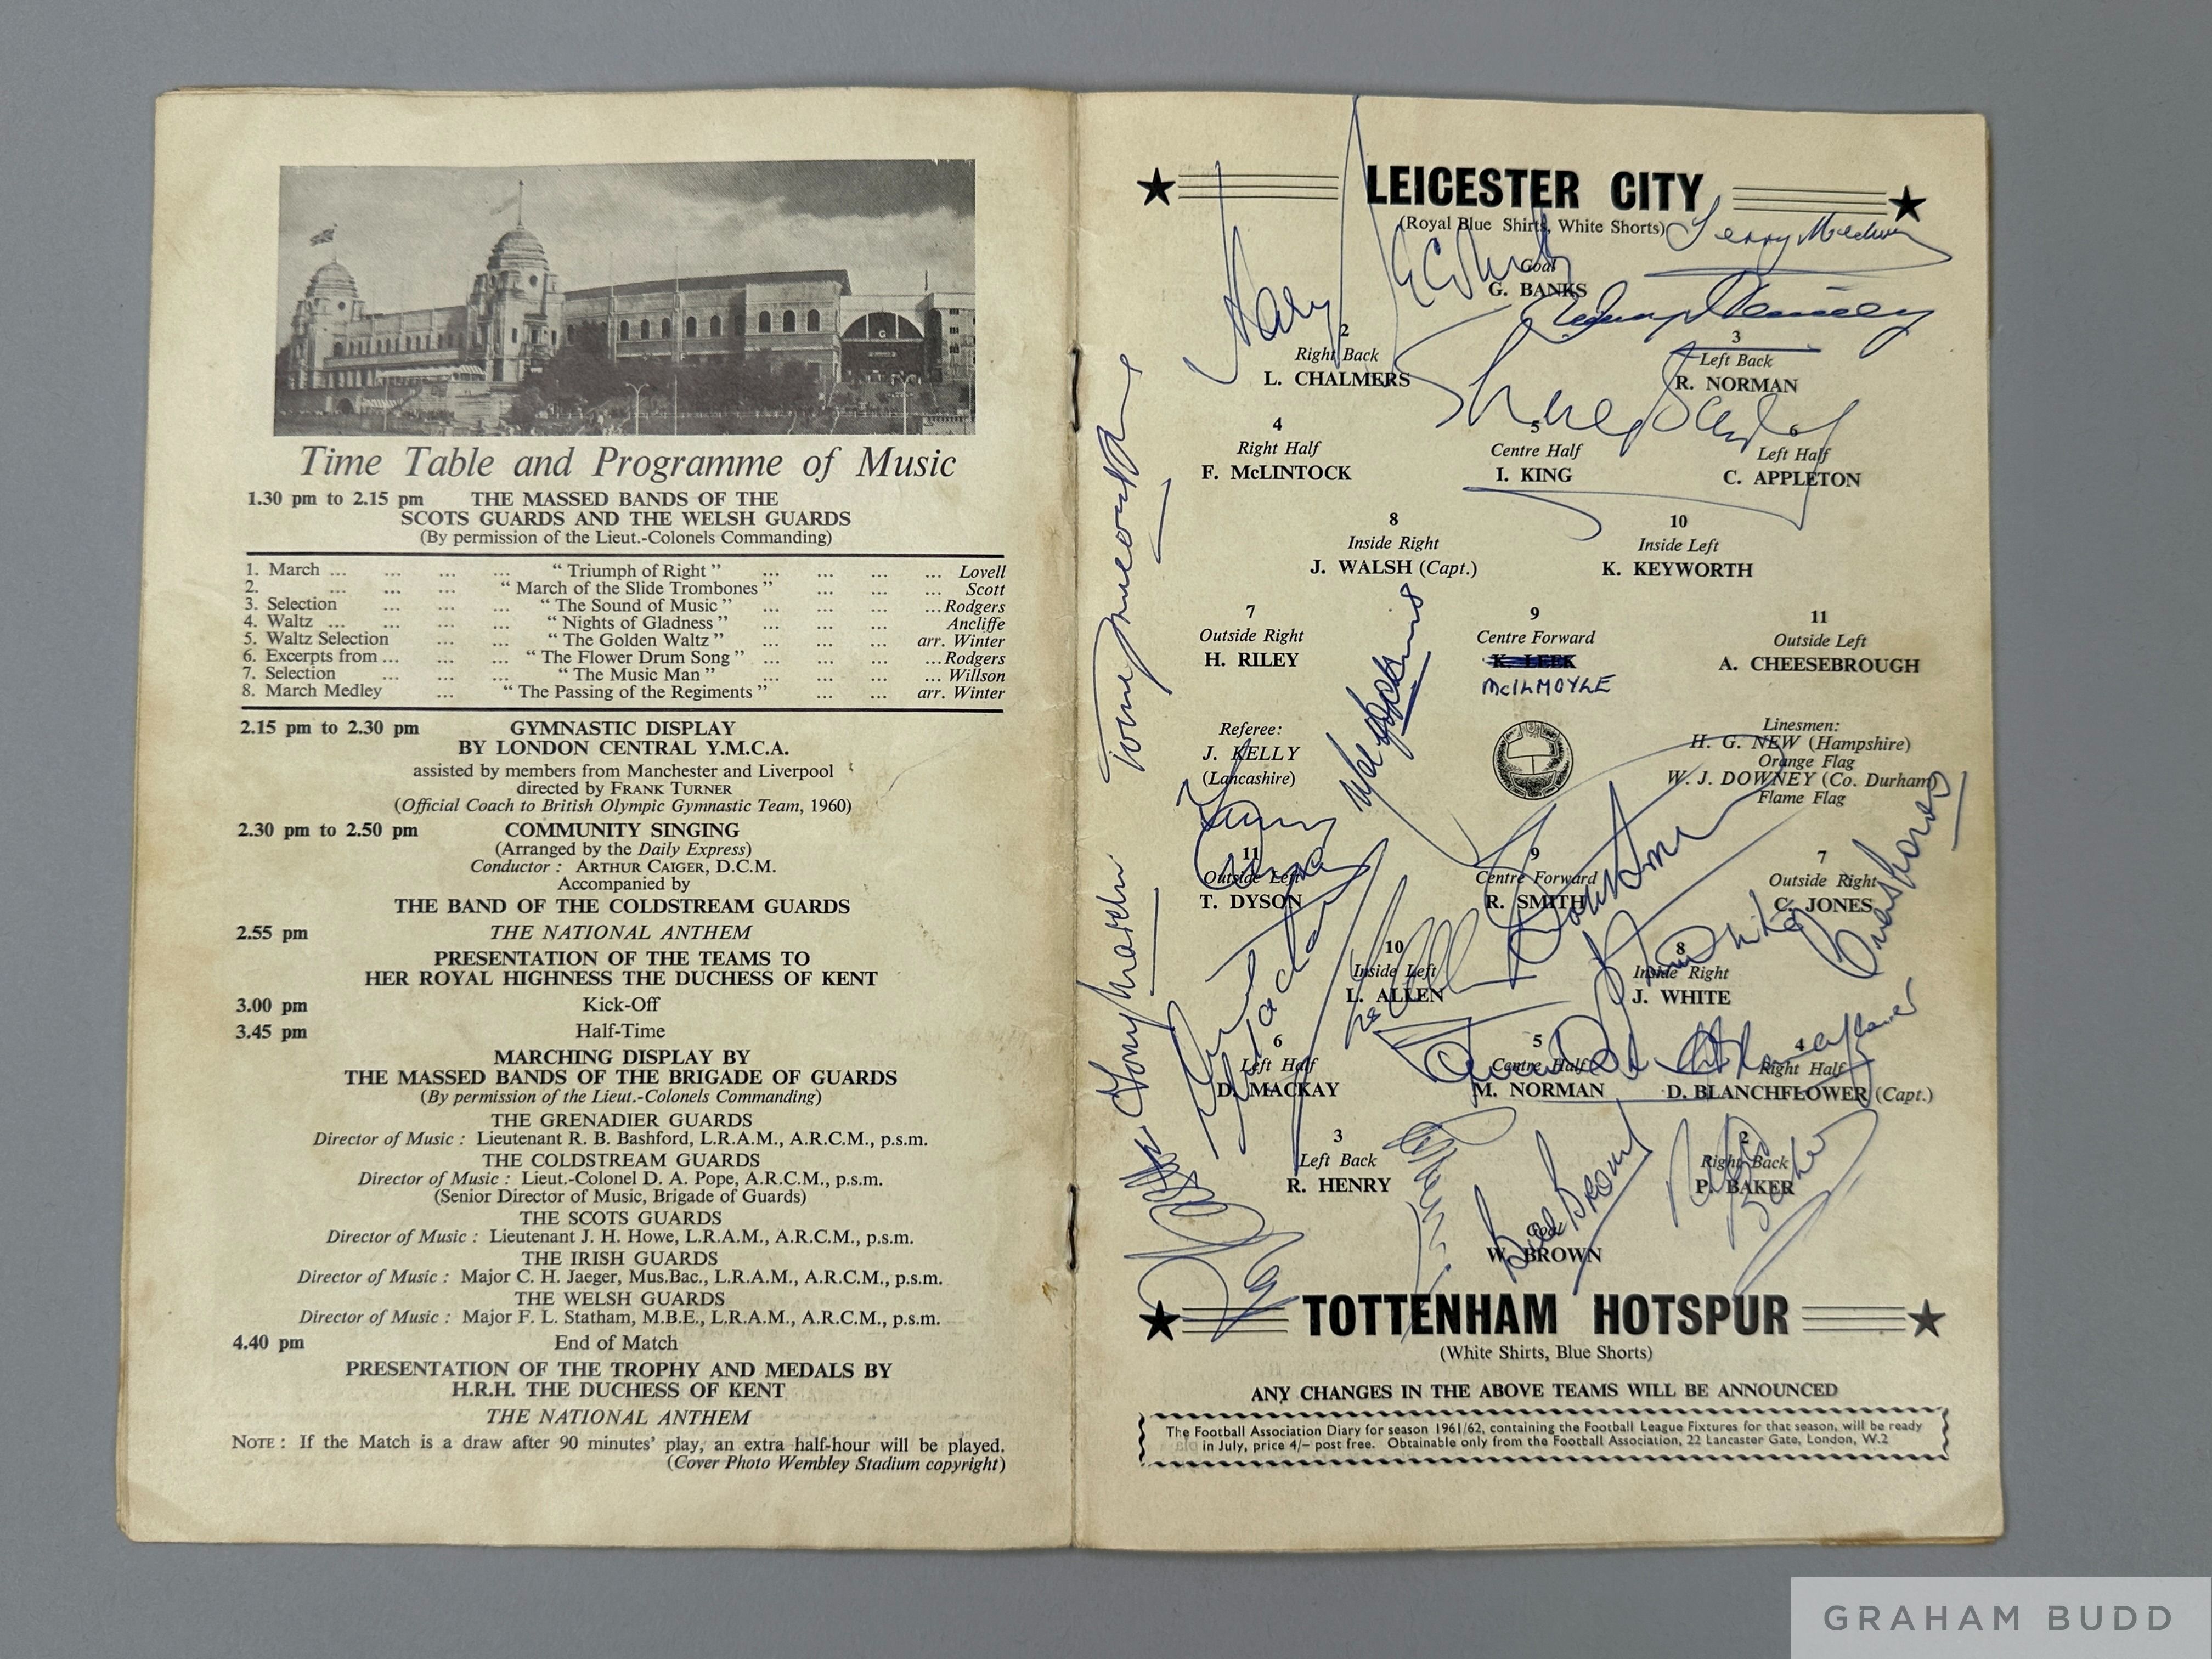 Time Table and Programme of Music
1.30 pm to 2.15 pm THE MASSED BANDS OF THE
SCOTS GUARDS AND THE WELSH GUARDS
(By permission of the Lieut.-Colonels Commanding)
1. March ... ... ... ... " Triumph of Right " ... ... ... ... Lovell
2. ... ... ... " March of the Slide Trombones " ... ... ... Scott
3. Selection ... ... ... " The Sound of Music " ... ... ... ...Rodgers
4. Waltz ... ... ... ... " Nights of Gladness " ... ... ... Ancliffe
5. Waltz Selection ... ... " The Golden Waltz " ... ... ... arr. Winter
6. Excerpts from ... ... ... " The Flower Drum Song " ... ... ... ...Rodgers
7. Selection ... ... ... ... " The Music Man " ... ... ... ... Willson
8. March Medley ... " The Passing of the Regiments " ... ... arr. Winter
2.15 pm to 2.30 pm GYMNASTIC DISPLAY
BY LONDON CENTRAL Y.M.C.A.
assisted by members from Manchester and Liverpool
directed by FRANK TURNER
(Official Coach to British Olympic Gymnastic Team, 1960)
2.30 pm to 2.50 pm COMMUNITY SINGING
(Arranged by the Daily Express)
Conductor : ARTHUR CAIGER, D.C.M.
Accompanied by
THE BAND OF THE COLDSTREAM GUARDS
2.55 pm THE NATIONAL ANTHEM
PRESENTATION OF THE TEAMS TO
HER ROYAL HIGHNESS THE DUCHESS OF KENT
3.00 pm Kick-Off
3.45 pm Half-Time
MARCHING DISPLAY BY
THE MASSED BANDS OF THE BRIGADE OF GUARDS
(By permission of the Lieut.-Colonels Commanding)
THE GRENADIER GUARDS
Director of Music : Lieutenant R. B. Bashford, L.R.A.M., A.R.C.M., p.s.m.
THE COLDSTREAM GUARDS
Director of Music : Lieut.-Colonel D. A. Pope, A.R.C.M., p.s.m.
(Senior Director of Music, Brigade of Guards)
THE SCOTS GUARDS
Director of Music : Lieutenant J. H. Howe, L.R.A.M., A.R.C.M., p.s.m.
THE IRISH GUARDS
Director of Music : Major C. H. Jaeger, Mus.Bac., L.R.A.M., A.R.C.M., p.s.m.
THE WELSH GUARDS
Director of Music : Major F. L. Statham, M.B.E., L.R.A.M., A.R.C.M., p.s.m.
4.40 pm End of Match
PRESENTATION OF THE TROPHY AND MEDALS BY
H.R.H. THE DUCHESS OF KENT
THE NATIONAL ANTHEM
NOTE : If the Match is a draw after 90 minutes' play, an extra half-hour will be played.
(Cover Photo Wembley Stadium copyright)
LEICESTER CITY
(Royal Blue Shirts, White Shorts)
Terry Medwin
Goal
G. BANKS
2 3
Right Back Left Back
L. CHALMERS R. NORMAN
4 5 6
Right Half Centre Half Left Half
F. McLINTOCK I. KING C. APPLETON
8 10
Inside Right Inside Left
J. WALSH (Capt.) K. KEYWORTH
7 9 11
Outside Right Centre Forward Outside Left
H. RILEY K. LEEK A. CHEESEBROUGH
McILMOYLE
Referee: Linesmen:
J. KELLY H. G. NEW (Hampshire)
(Lancashire) Orange Flag
W. J. DOWNEY (Co. Durham)
Flame Flag
11 9 7
Outside Left Centre Forward Outside Right
T. DYSON R. SMITH C. JONES
10 8
Inside Left Inside Right
L. ALLEN J. WHITE
6 5 4
Left Half Centre Half Right Half
D. MACKAY M. NORMAN D. BLANCHFLOWER (Capt.)
3 2
Left Back Right Back
R. HENRY P. BAKER
Bill Brown
Peter Baker
Tony Marchi
Goal
W. BROWN
TOTTENHAM HOTSPUR
(White Shirts, Blue Shorts)
ANY CHANGES IN THE ABOVE TEAMS WILL BE ANNOUNCED
The Football Association Diary for season 1961/62, containing the Football League Fixtures for that season, will be ready
in July, price 4/– post free. Obtainable only from the Football Association, 22 Lancaster Gate, London, W.2
GRAHAM BUDD